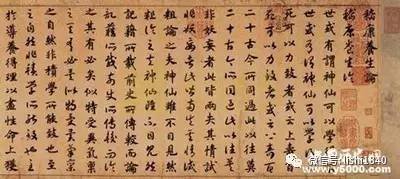 嵇康養生論
世或有謂神仙可以學得不
死可以力致者或云上壽百
二十古今所同過此以往莫
非妖妄者此皆兩失其情試
粗論之夫神仙雖不目見然
記籍所載前史所傳較而論
之其有必矣似特受異氣稟
之自然非積學所能致也至
於導養得理以盡性命上獲
微信号: lishi1840
www.y5000.com